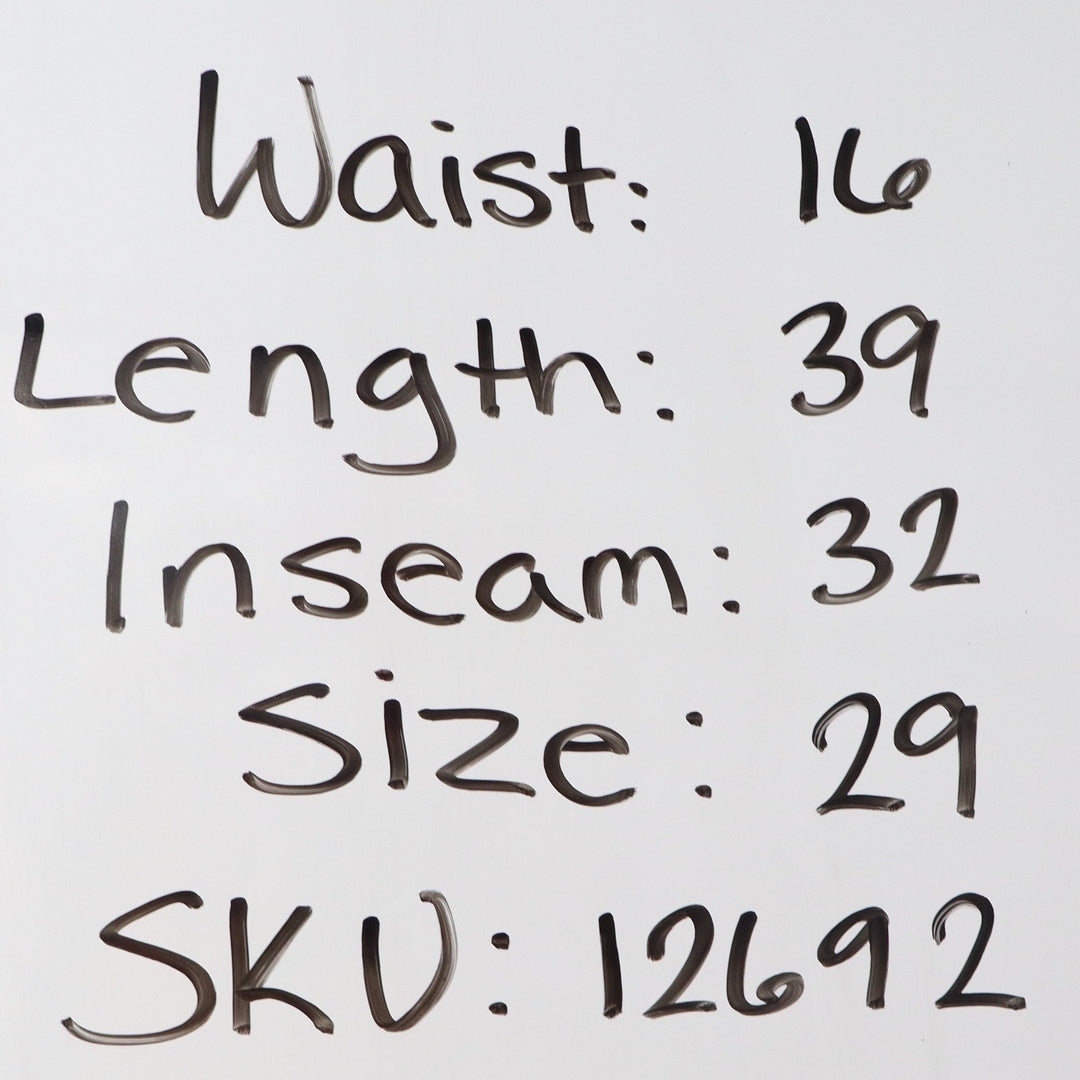 Waist: 16
Length: 39
Inseam: 32
Size: 29
SKU: 12692